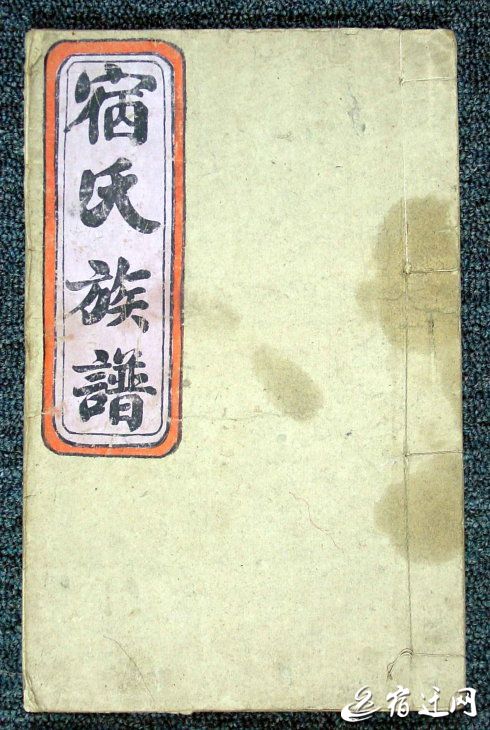 宿氏族譜
宿迁网